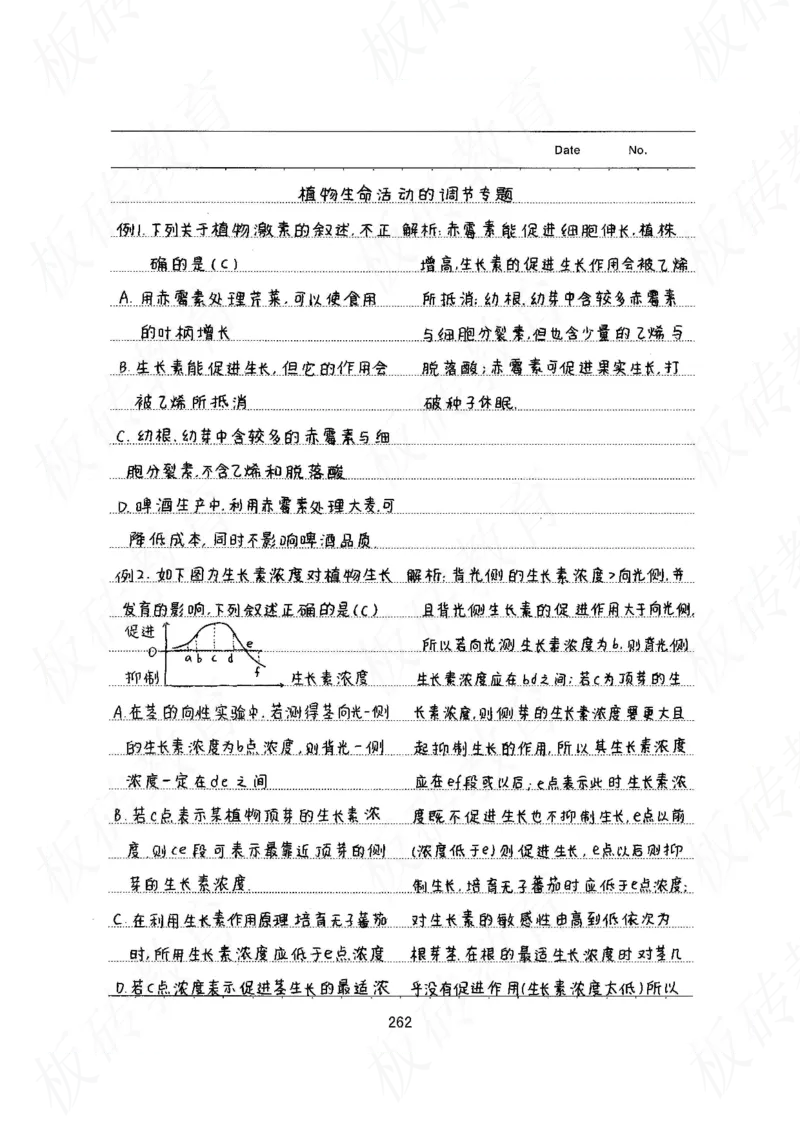 Date No.
植物生命活动的调节专题
例1.下列关于植物激素的叙述,不正
确的是(C)
A. 用赤霉素处理芹菜,可以使食用
的叶柄增长
B. 生长素能促进生长,但它的作用会
被乙烯所抵消
C. 幼根.幼芽中含较多的赤霉素与细
胞分裂素,不含乙烯和脱落酸
D. 啤酒生产中,利用赤霉素处理大麦,可
降低成本,同时不影响啤酒品质.
解析:赤霉素能促进细胞伸长,植株
增高,生长素的促进生长作用会被乙烯
所抵消;幼根.幼芽中含较多赤霉素
与细胞分裂素,但也含少量的乙烯与
脱落酸;赤霉素可促进果实生长,打
破种子休眠.
例2. 如下图为生长素浓度对植物生长
发育的影响,下列叙述正确的是(C)
促进
0
抑制
a b c d e f
生长素浓度
A.在茎的向性实验中,若测得茎向光一侧
的生长素浓度为b点浓度,则背光一侧
浓度一定在de之间
B. 若C点表示某植物顶芽的生长素浓
度,则ce段可表示最靠近顶芽的侧
芽的生长素浓度.
C. 在利用生长素作用原理培育无子蕃茄
时,所用生长素浓度应低于e点浓度
D.若C点浓度表示促进茎生长的最适浓
解析:背光侧的生长素浓度>向光侧,并
且背光侧生长素的促进作用大于向光侧,
所以若向光测生长素浓度为b,则背光侧
生长素浓度应在bd之间;若C为顶芽的生
长素浓度,则侧芽的生长素浓度要更大且
起抑制生长的作用,所以其生长素浓度
应在ef段或以后;e点表示此时生长素浓
度既不促进生长也不抑制生长,e点以前
(浓度低于e)则促进生长,e点以后则抑
制生长,培育无子蕃茄时应低于e点浓度;
对生长素的敏感性由高到低依次为
根芽茎.在根的最适生长浓度时对茎几
乎没有促进作用(生长素浓度太低)所以
262
板砖教育